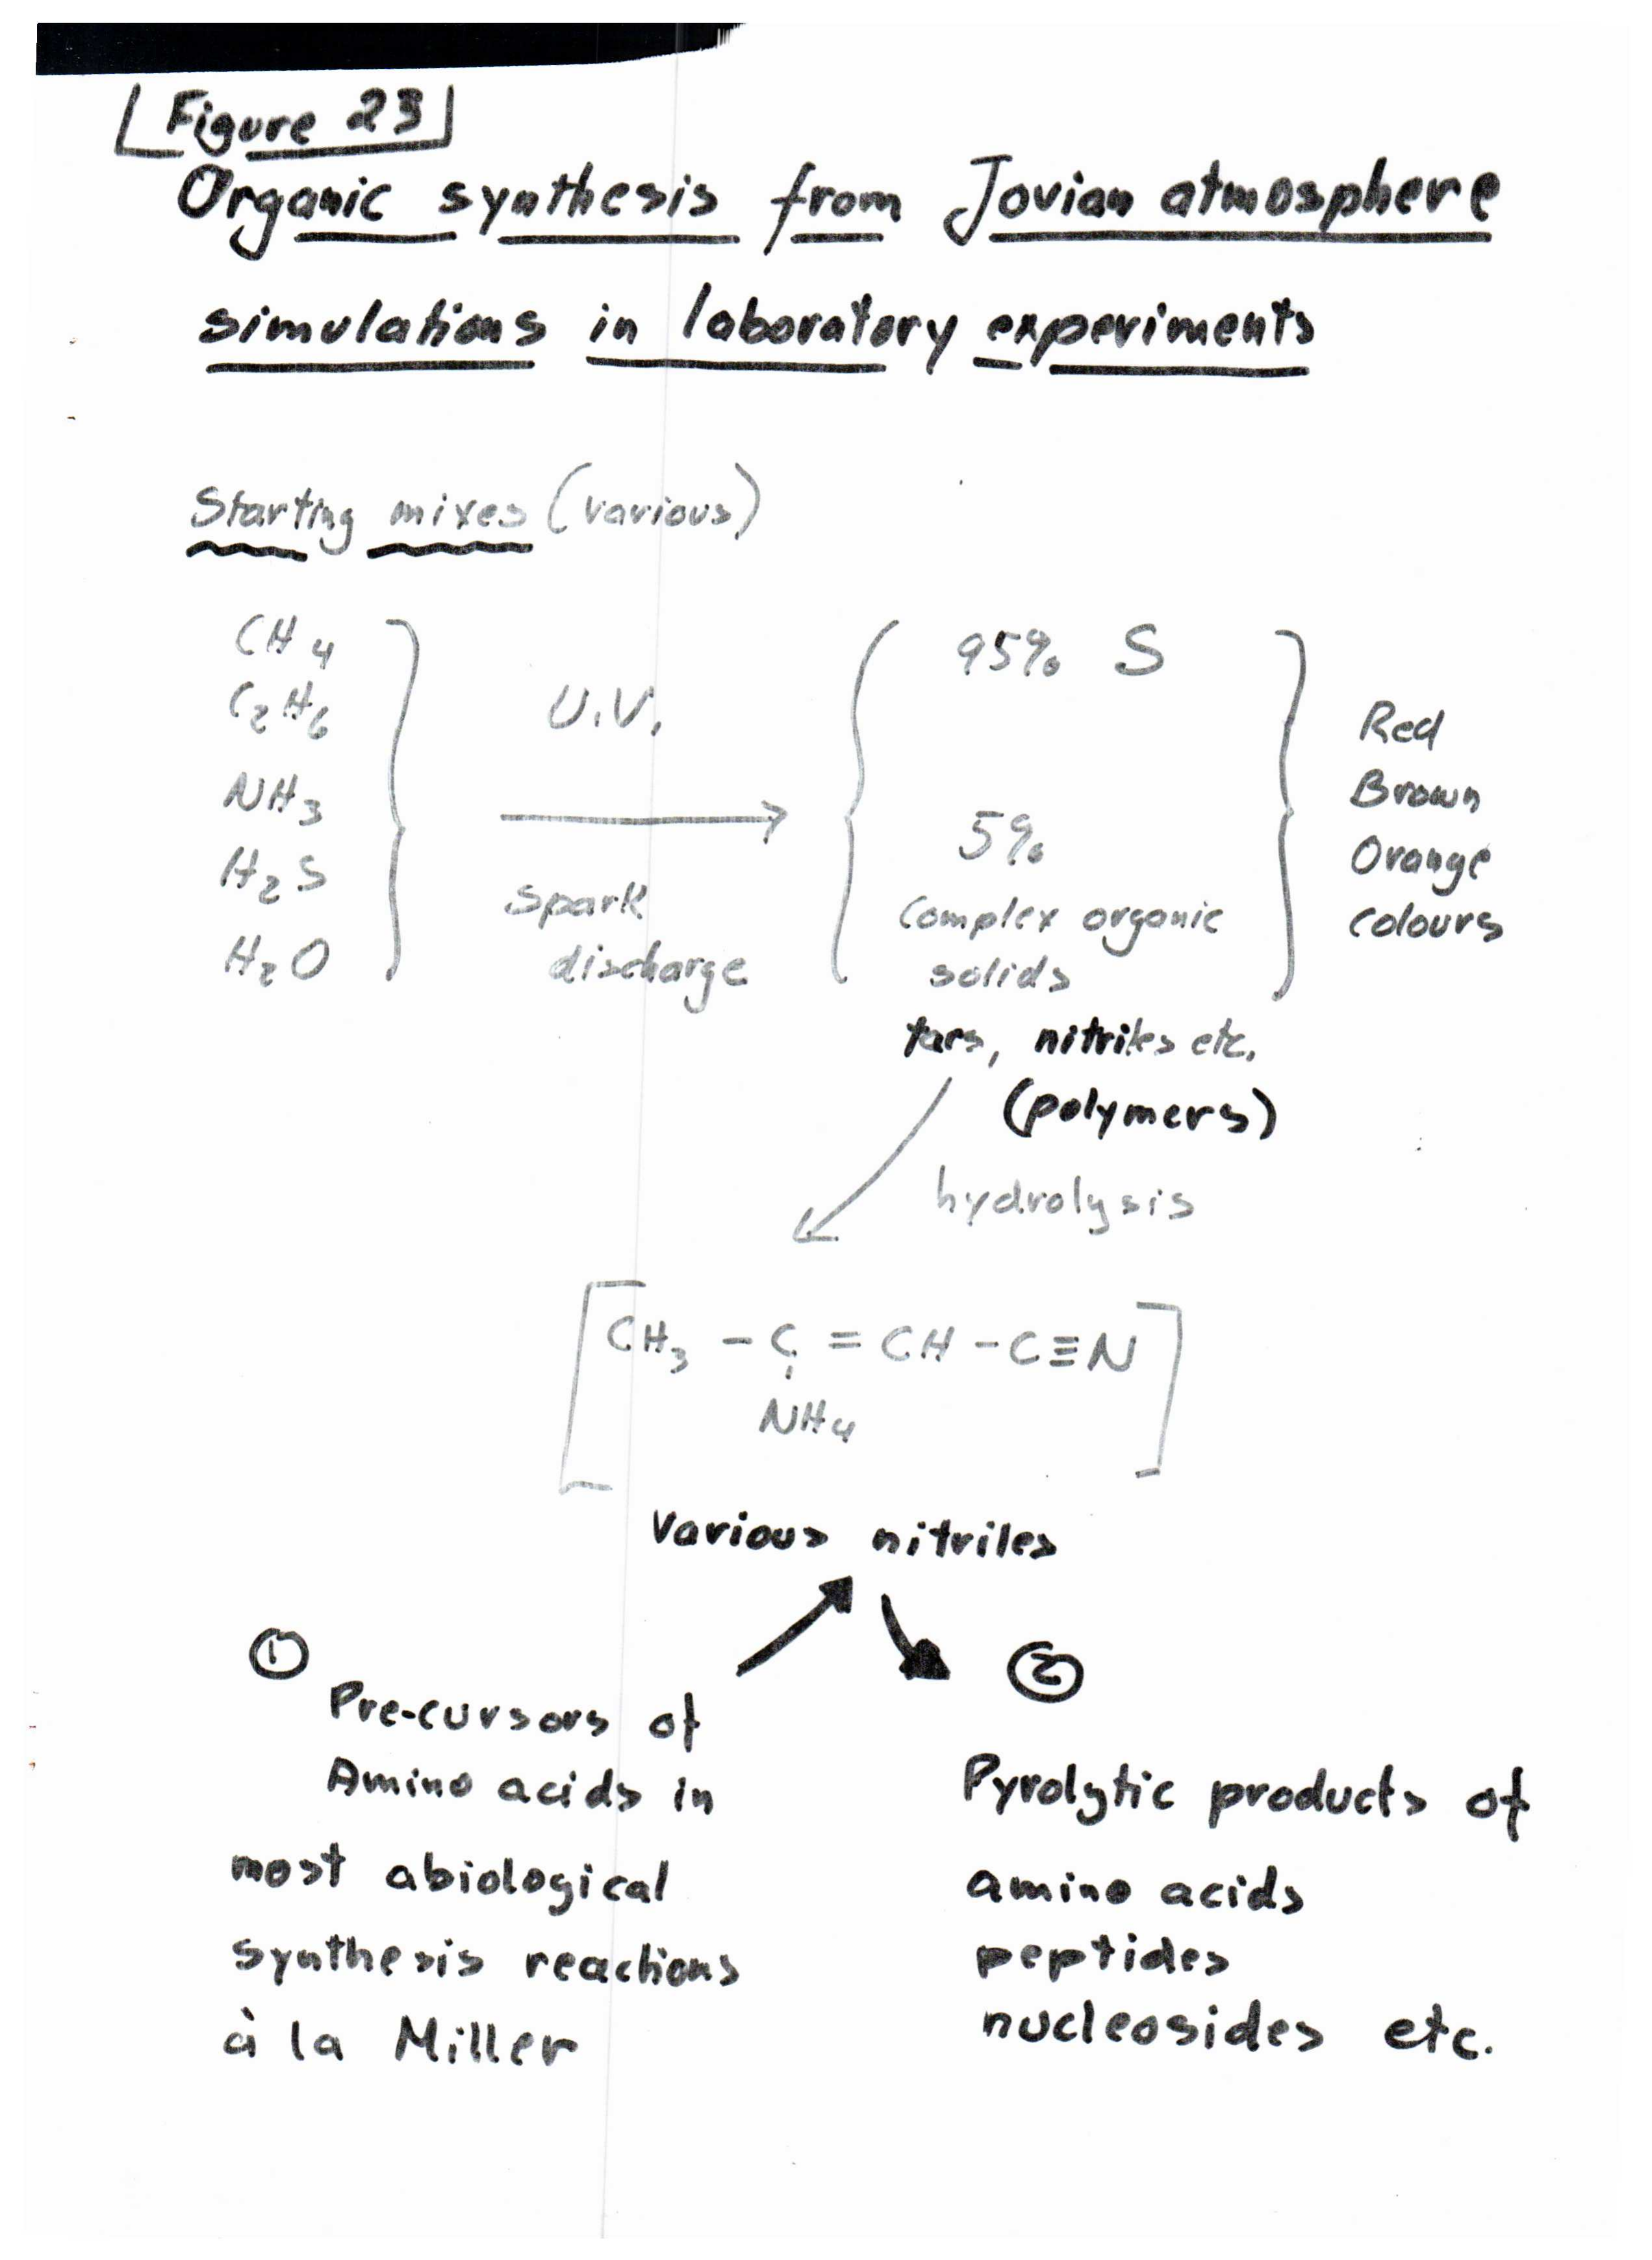 Figure 23
Organic synthesis from Jovian atmosphere
simulations in laboratory experiments
Starting mixes (various)
CH4
C2H6
NH3
H2S
H2O
U.V.
spark
discharge
95% S
5%
complex organic
solids
tars, nitriles etc.
(polymers)
Red
Brown
Orange
colours
hydrolysis
CH3 – C = CH – C≡N
NH4
Various nitriles
①
Pre-cursors of
Amino acids in
most abiological
synthesis reactions
à la Miller
②
Pyrolytic products of
amino acids
peptides
nucleosides etc.